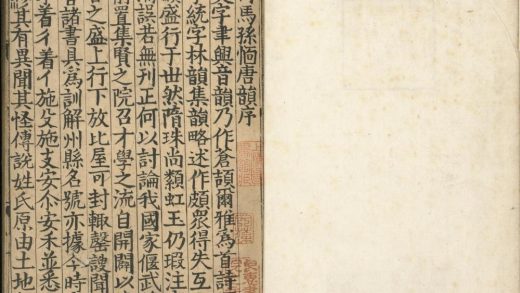 馬孫愐唐韻序
文字聿興音韻乃作蒼頡爾雅為首詩
字統字林韻集韻略述作頗衆得失互
盛行于世然隋珠尚纇虹王仍瑕注
誤若無刊正何以討論我國家偃武
置集賢之院召才學之流自開闢以
之盛上行下放比屋可封輒罄謏聞
諸書具爲訓解州縣名號亦據今時
着彳着亻施殳施支安尒安禾並悉
其有異聞其怪傳說姓氏原由土地